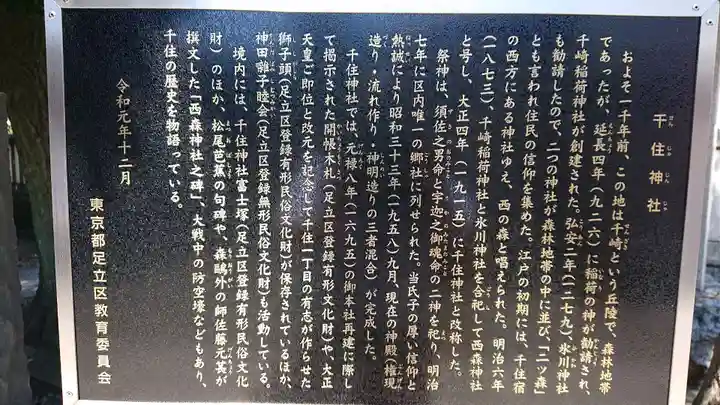 千住神社
せんじゅじんじゃ
およそ一千年前、この地は千崎という丘陵で、森林地帯
であったが、延長四年（九二六）に稲荷の神が勧請され、
千崎稲荷神社が創建された。弘安二年（一二七九）氷川神社
も勧請したので、二つの神社が森林地帯の中に並び、「二ツ森」
とも言われ住民の信仰を集めた。江戸の初期には、千住宿
の西方にある神社ゆえ、西の森と唱えられた。明治六年
（一八七三）、千崎稲荷神社と氷川神社を合祀して西森神社
と号し、大正四年（一九一五）に千住神社と改称した。
祭神は、須佐之男命と宇迦之御魂命の二神を祀り、明治
七年に区内唯一の郷社に列せられた。当氏子の厚い信仰と
熱誠により昭和三十三年（一九五八）九月、現在の神殿（権現
造り・流れ作り・神明造りの三者混合）が完成した。
千住神社では、元禄八年（一六九五）の御本社再建に際し
て掲示された開帳木札（足立区登録有形文化財）や、大正
天皇ご即位と改元を記念して千住一丁目の有志が作らせた
獅子頭（足立区登録有形民俗文化財）が保存されているほか、
神田囃子睦会（足立区登録無形民俗文化財）も活動している。
境内には、千住神社富士塚（足立区登録有形民俗文化
財）のほか、松尾芭蕉の句碑や、森鷗外の師佐藤元萇が
撰文した「西森神社之碑」、大戦中の防空壕などもあり、
千住の歴史を物語っている。
令和元年十二月
東京都足立区教育委員会